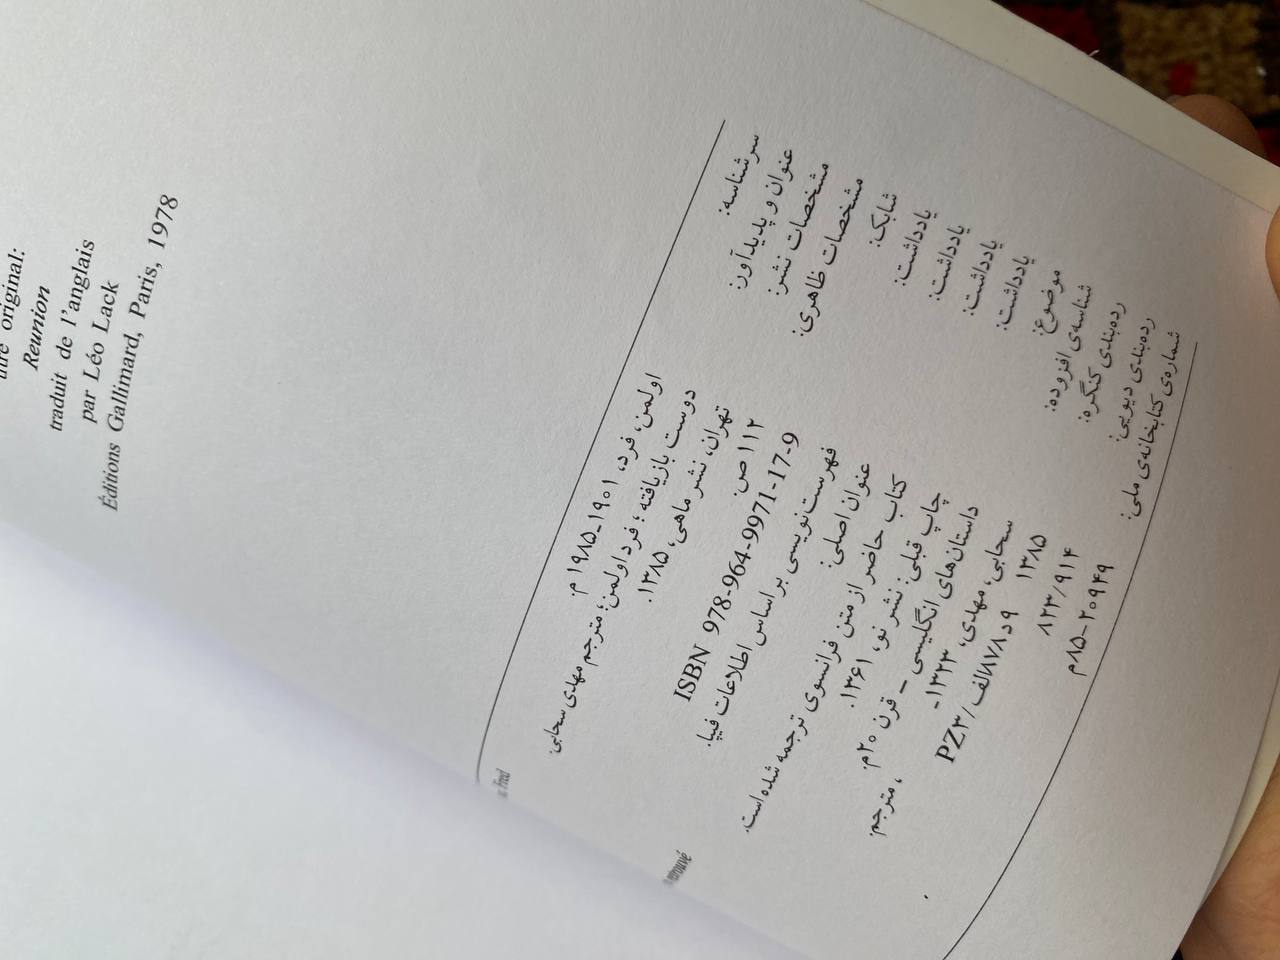 original:
Reunion
traduit de l'anglais
par Léo Lack
Éditions Gallimard, Paris, 1978
سرشناسه: اولمن، فرد، ۱۹۰۱-۱۹۸۵ م. Fred
عنوان و پدیدآور: دوست بازیافته؛ فرد اولمن؛ مترجم مهدی سحابی.
مشخصات نشر: تهران، نشر ماهی، ۱۳۸۵.
مشخصات ظاهری: ۱۱۲ ص.
شابک: ISBN 978-964-9971-17-9
یادداشت: فهرست‌نویسی بر اساس اطلاعات فیپا.
یادداشت: عنوان اصلی: retrouvé
یادداشت: کتاب حاضر از متن فرانسوی ترجمه شده است.
یادداشت: چاپ قبلی: نشر نو، ۱۳۶۱.
موضوع: داستان‌های انگلیسی – قرن ۲۰م.
شناسه‌ی افزوده: سحابی، مهدی، ۱۳۲۳- ، مترجم.
رده‌بندی کنگره: ۱۳۸۵ ۹د۸۷۸الف/PZ۳
رده‌بندی دیویی: ۸۲۳/۹۱۴
شماره‌ی کتابخانه‌ی ملی: ۸۵-۲۰۹۴۹م